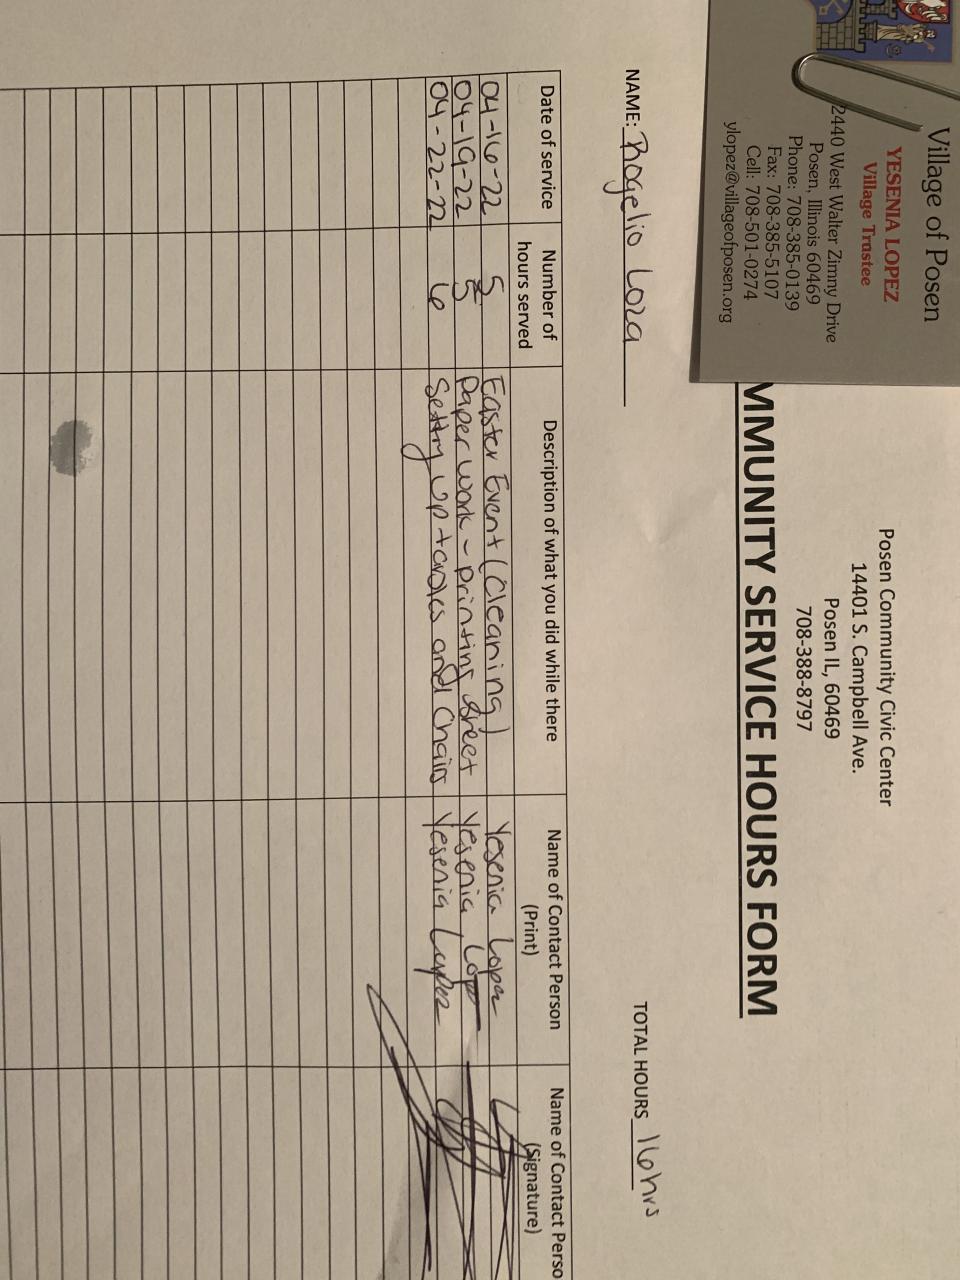 Village of Posen
YESENIA LOPEZ
Village Trustee
2440 West Walter Zimny Drive
Posen, Illinois 60469
Phone: 708-385-0139
Fax: 708-385-5107
Cell: 708-501-0274
ylopez@villageofposen.org
Posen Community Civic Center
14401 S. Campbell Ave.
Posen IL, 60469
708-388-8797
MMUNITY SERVICE HOURS FORM
NAME: Rogelio Loza
TOTAL HOURS 16hrs
Date of service Number of hours served Description of what you did while there Name of Contact Person (Print) Name of Contact Perso (Signature)
04-16-22 5 Easter Event (Cleaning) Yesenia Lopez
04-19-22 5 Paper work - printing sheet Yesenia Lop
04-22-22 6 Setting up tables and Chairs Yesenia Lopez